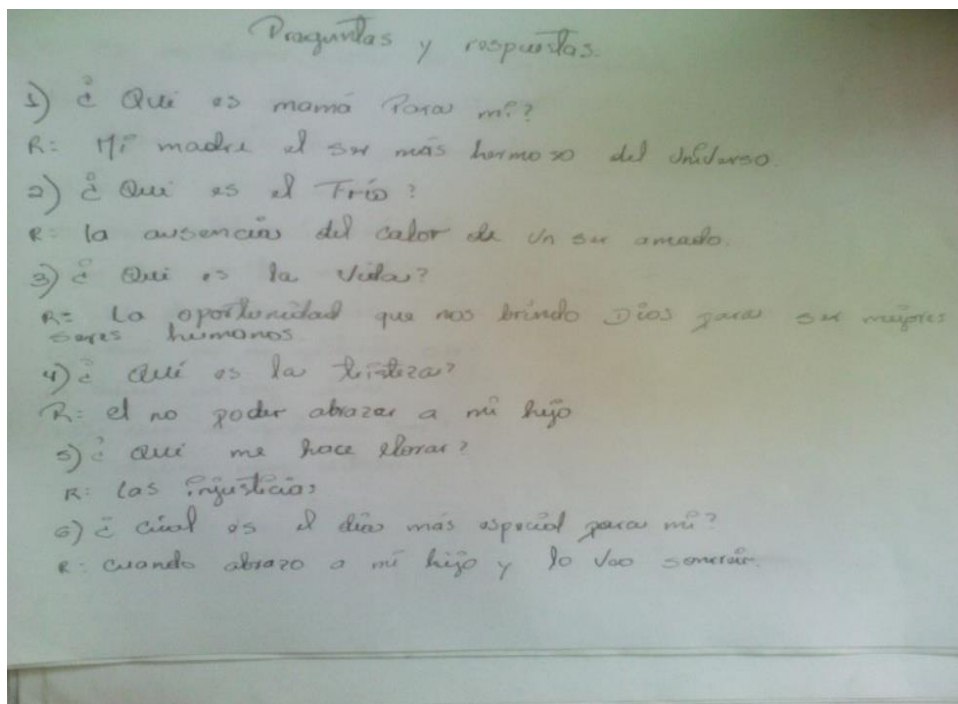 Preguntas y respuestas.
1) ¿ Qué es mamá Para mí?
R: Mi madre el ser más hermoso del Universo.
2) ¿ Qué es el Frío?
R: la ausencia del calor de un ser amado.
3) ¿ Qué es la Vida?
R: La oportunidad que nos brindo Dios para ser mejores
seres humanos
4) ¿ Qué es la tristeza?
R: el no poder abrazar a mi hijo
5) ¿ Qué me hace llorar?
R: las injusticias
6) ¿ Cuál es el día más especial para mí?
R: Cuando abrazo a mi hijo y lo veo sonreír.